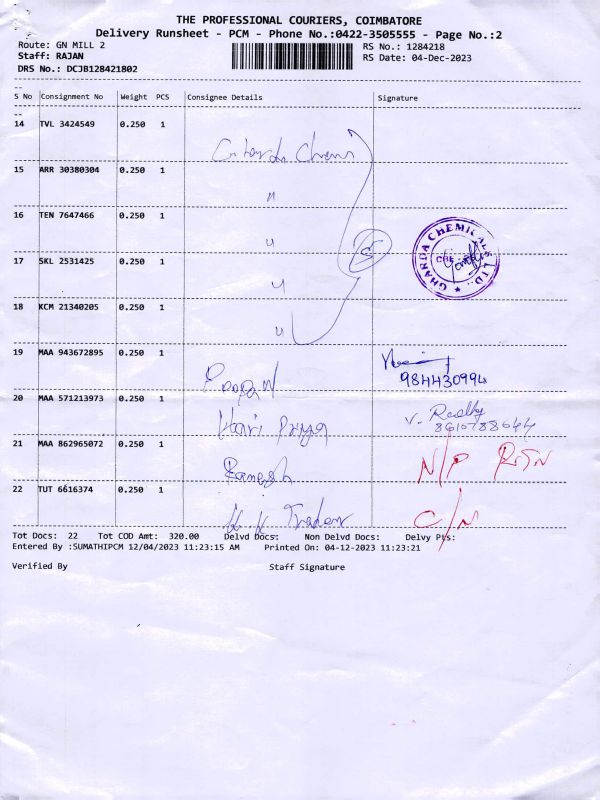 THE PROFESSIONAL COURIERS, COIMBATORE
Delivery Runsheet - PCM - Phone No.:0422-3505555 - Page No.:2
Route: GN MILL 2
RS No.: 1284218
Staff: RAJAN
RS Date: 04-Dec-2023
DRS No.: DCJB128421802
S No Consignment No Weight PCS Consignee Details Signature
14 TVL 3424549 0.250 1
15 ARR 30380304 0.250 1 "
16 TEN 7647466 0.250 1 "
GHARDA CHEMICALS LTD.
5
17 SKL 2531425 0.250 1 "
18 KCM 21340205 0.250 1 "
19 MAA 943672895 0.250 1
984430994
20 MAA 571213973 0.250 1 Hari Priya V. Reddy
8610788644
21 MAA 862965072 0.250 1 Ramesh N/P RTN
22 TUT 6616374 0.250 1 K K Trader C/N
Tot Docs: 22 Tot COD Amt: 320.00 Delvd Docs: Non Delvd Docs: Delvy Pts:
Entered By :SUMATHIPCM 12/04/2023 11:23:15 AM Printed On: 04-12-2023 11:23:21
Verified By Staff Signature